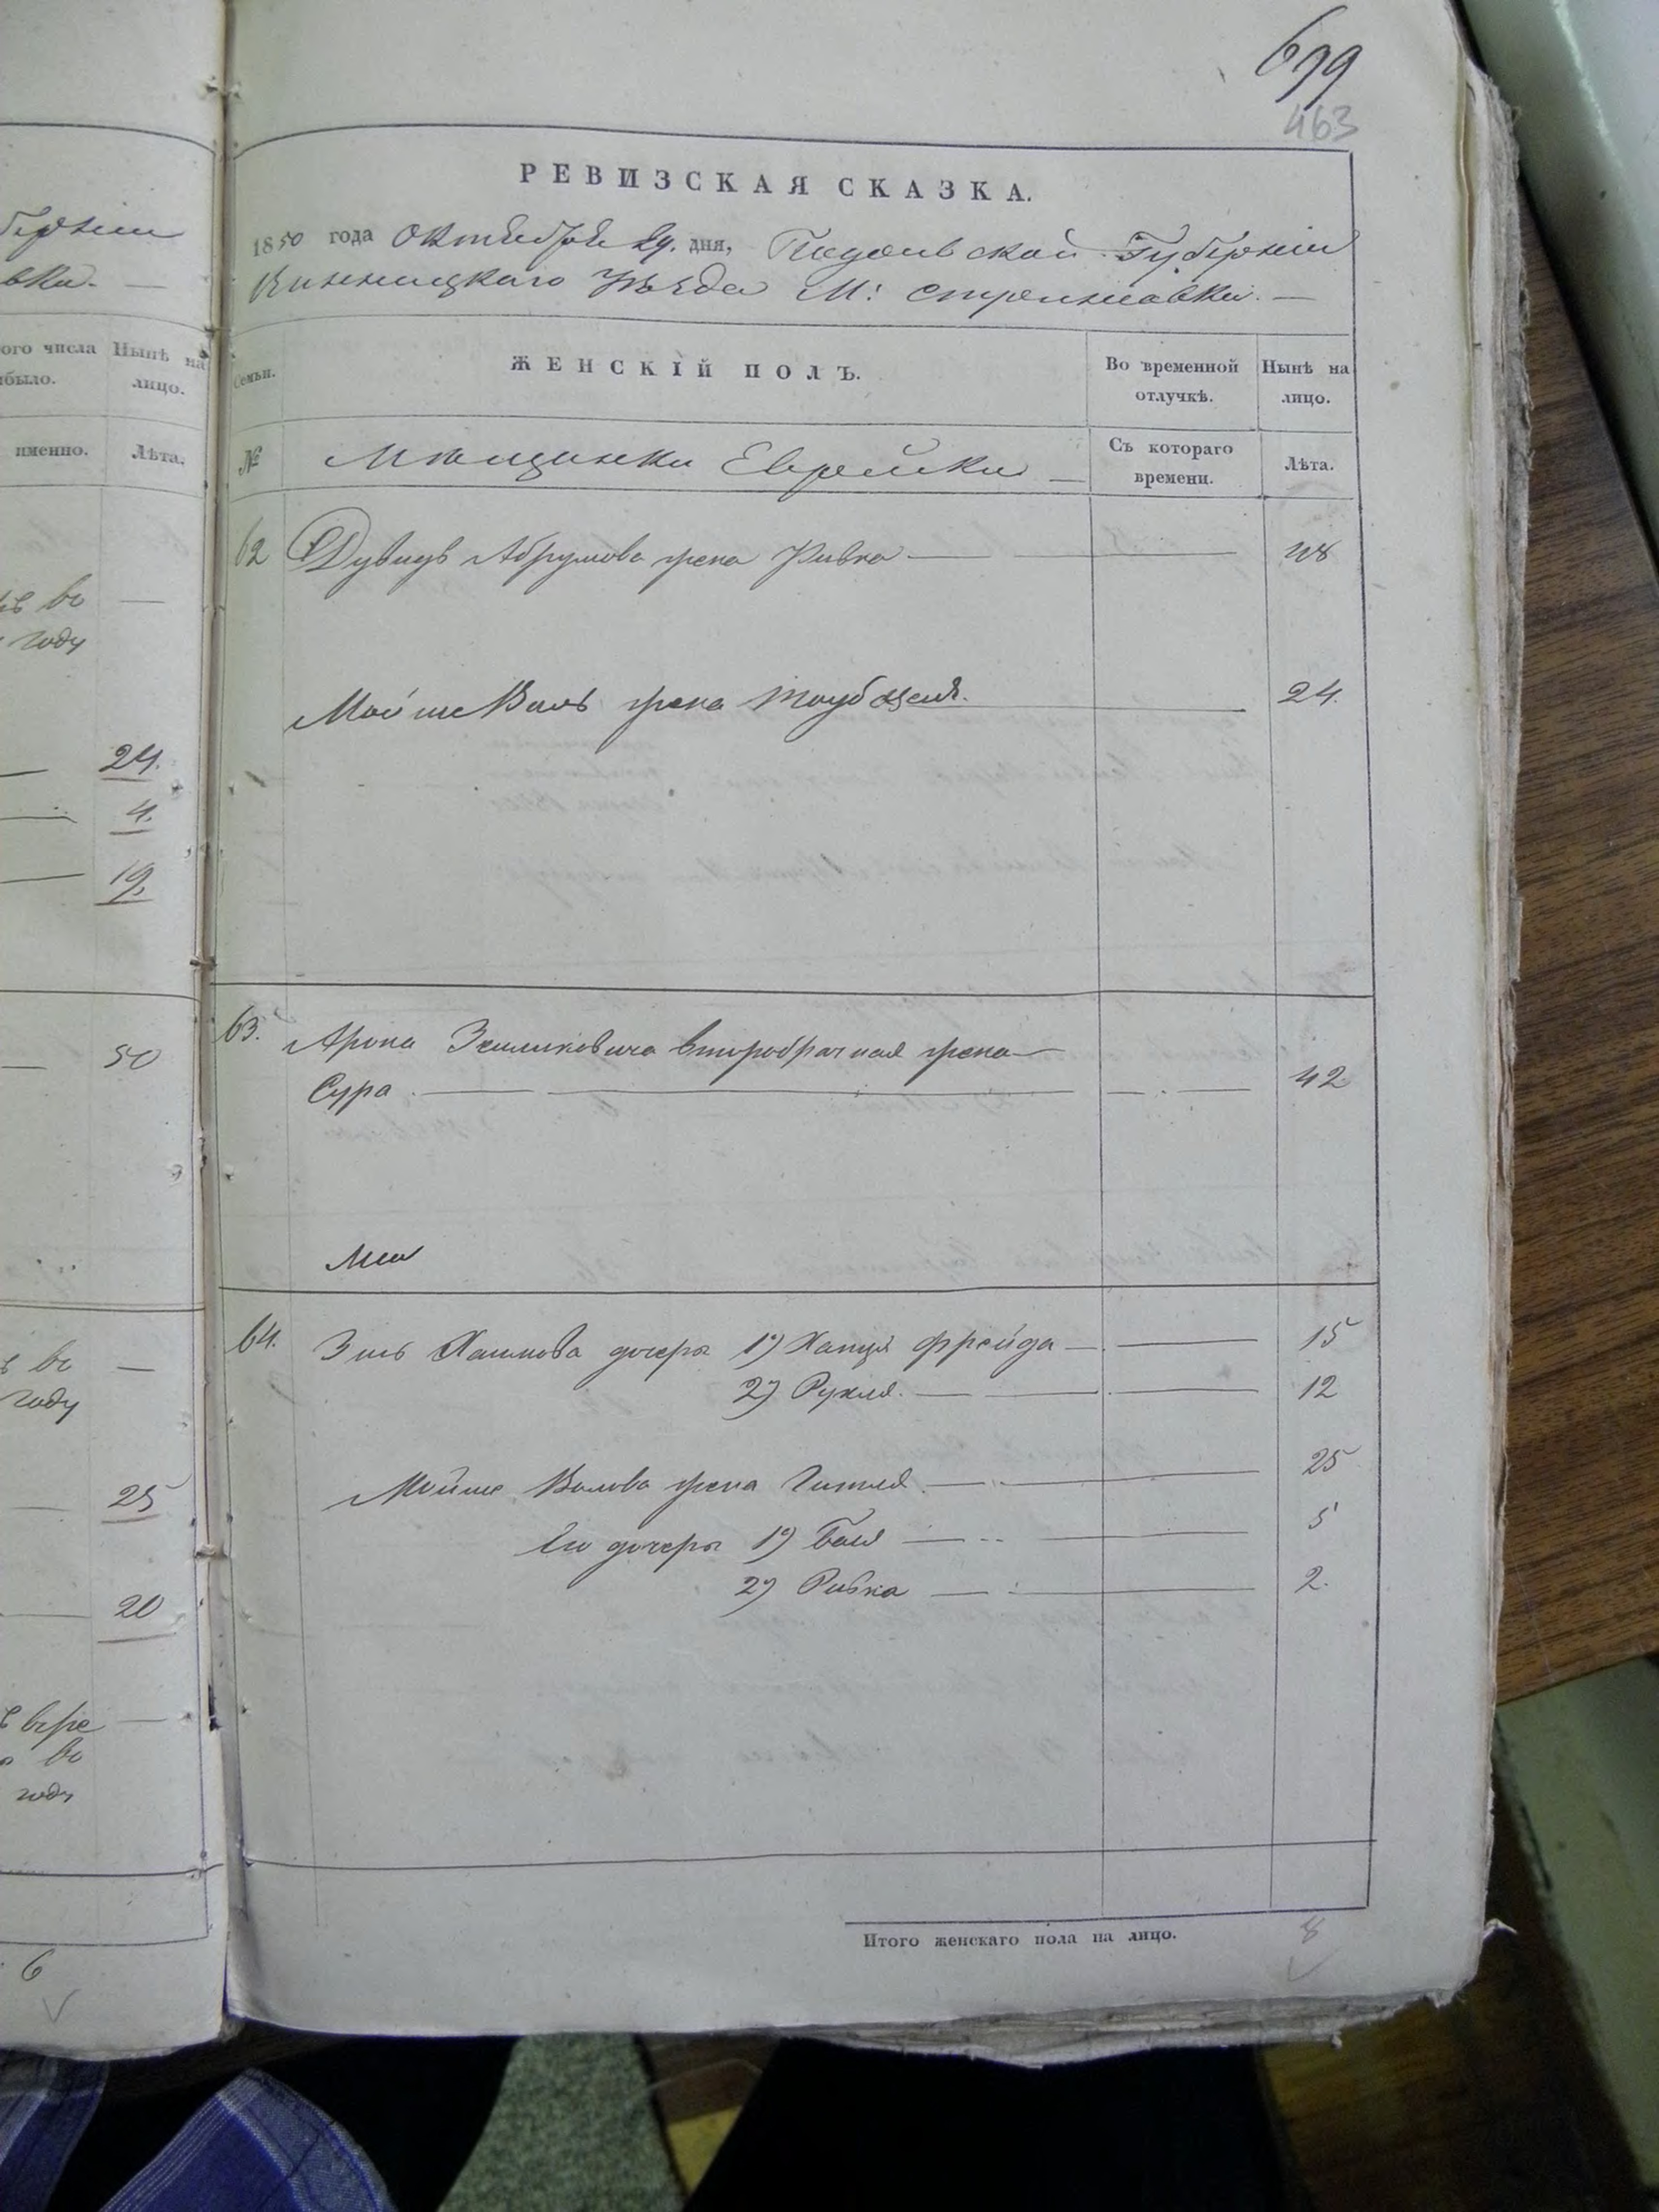 699
463
РЕВИЗСКАЯ СКАЗКА.
1850 года Октября 29. дня, Подольской Губерніи
Винницкаго Уѣзда М: Стрижавки. —
Семьи.
ЖЕНСКІЙ ПОЛЪ.
Во временной отлучкѣ.
Нынѣ на лицо.
№
Мѣщанки Еврейки —
Съ котораго времени.
Лѣта.
62 Дувидъ Абрумова жена Ривка — 48
Мойше жена — 24.
63. Арона Зеиликовича второбрачная жена —
Сура — 42
64. Хаимова дочеры 1) Ханця Фрейда — 15
2) Рухля. — 12
Мойше Волова жена Гитля — 25
Его дочеры 1) Бася — 5
2) Ривка — 2.
Итого женскаго пола на лицо. 8
губерніи
вки. —
ого числа
было.
Нынѣ на
лицо.
именно.
Лѣта.
во —
году
24.
4.
19.
50
во —
году
25
20
во
году
6